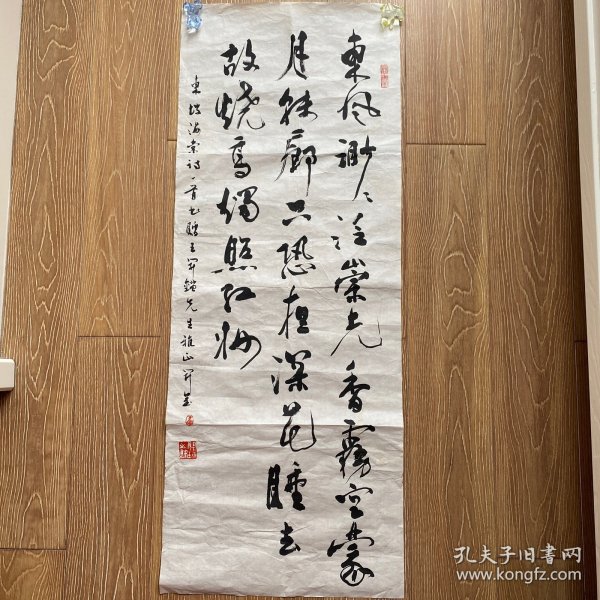 東風泛崇光香霧空蒙
月轉廊只恐夜深花睡去
故燒高燭照红妝
東坡海棠詩一首書贈王先生雅正
孔夫子旧書网
www.kongfz.com